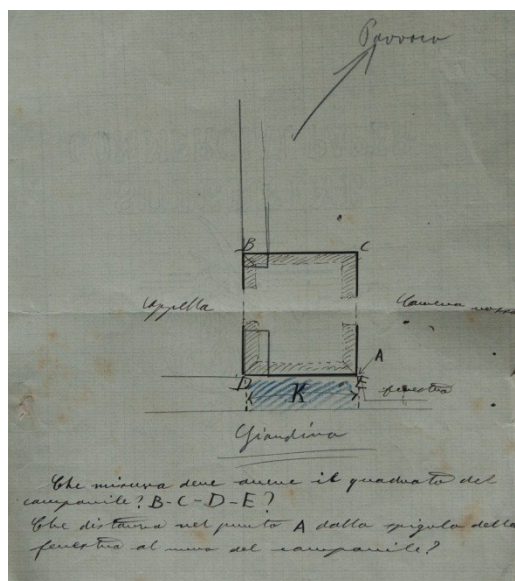 B C
Cappella Camera rossa
A
D E
K finestra
Giardino
Che misura deve avere il quadrato del
campanile? B-C-D-E?
Che distanza nel punto A dalla spigola della
finestra al muro del campanile?